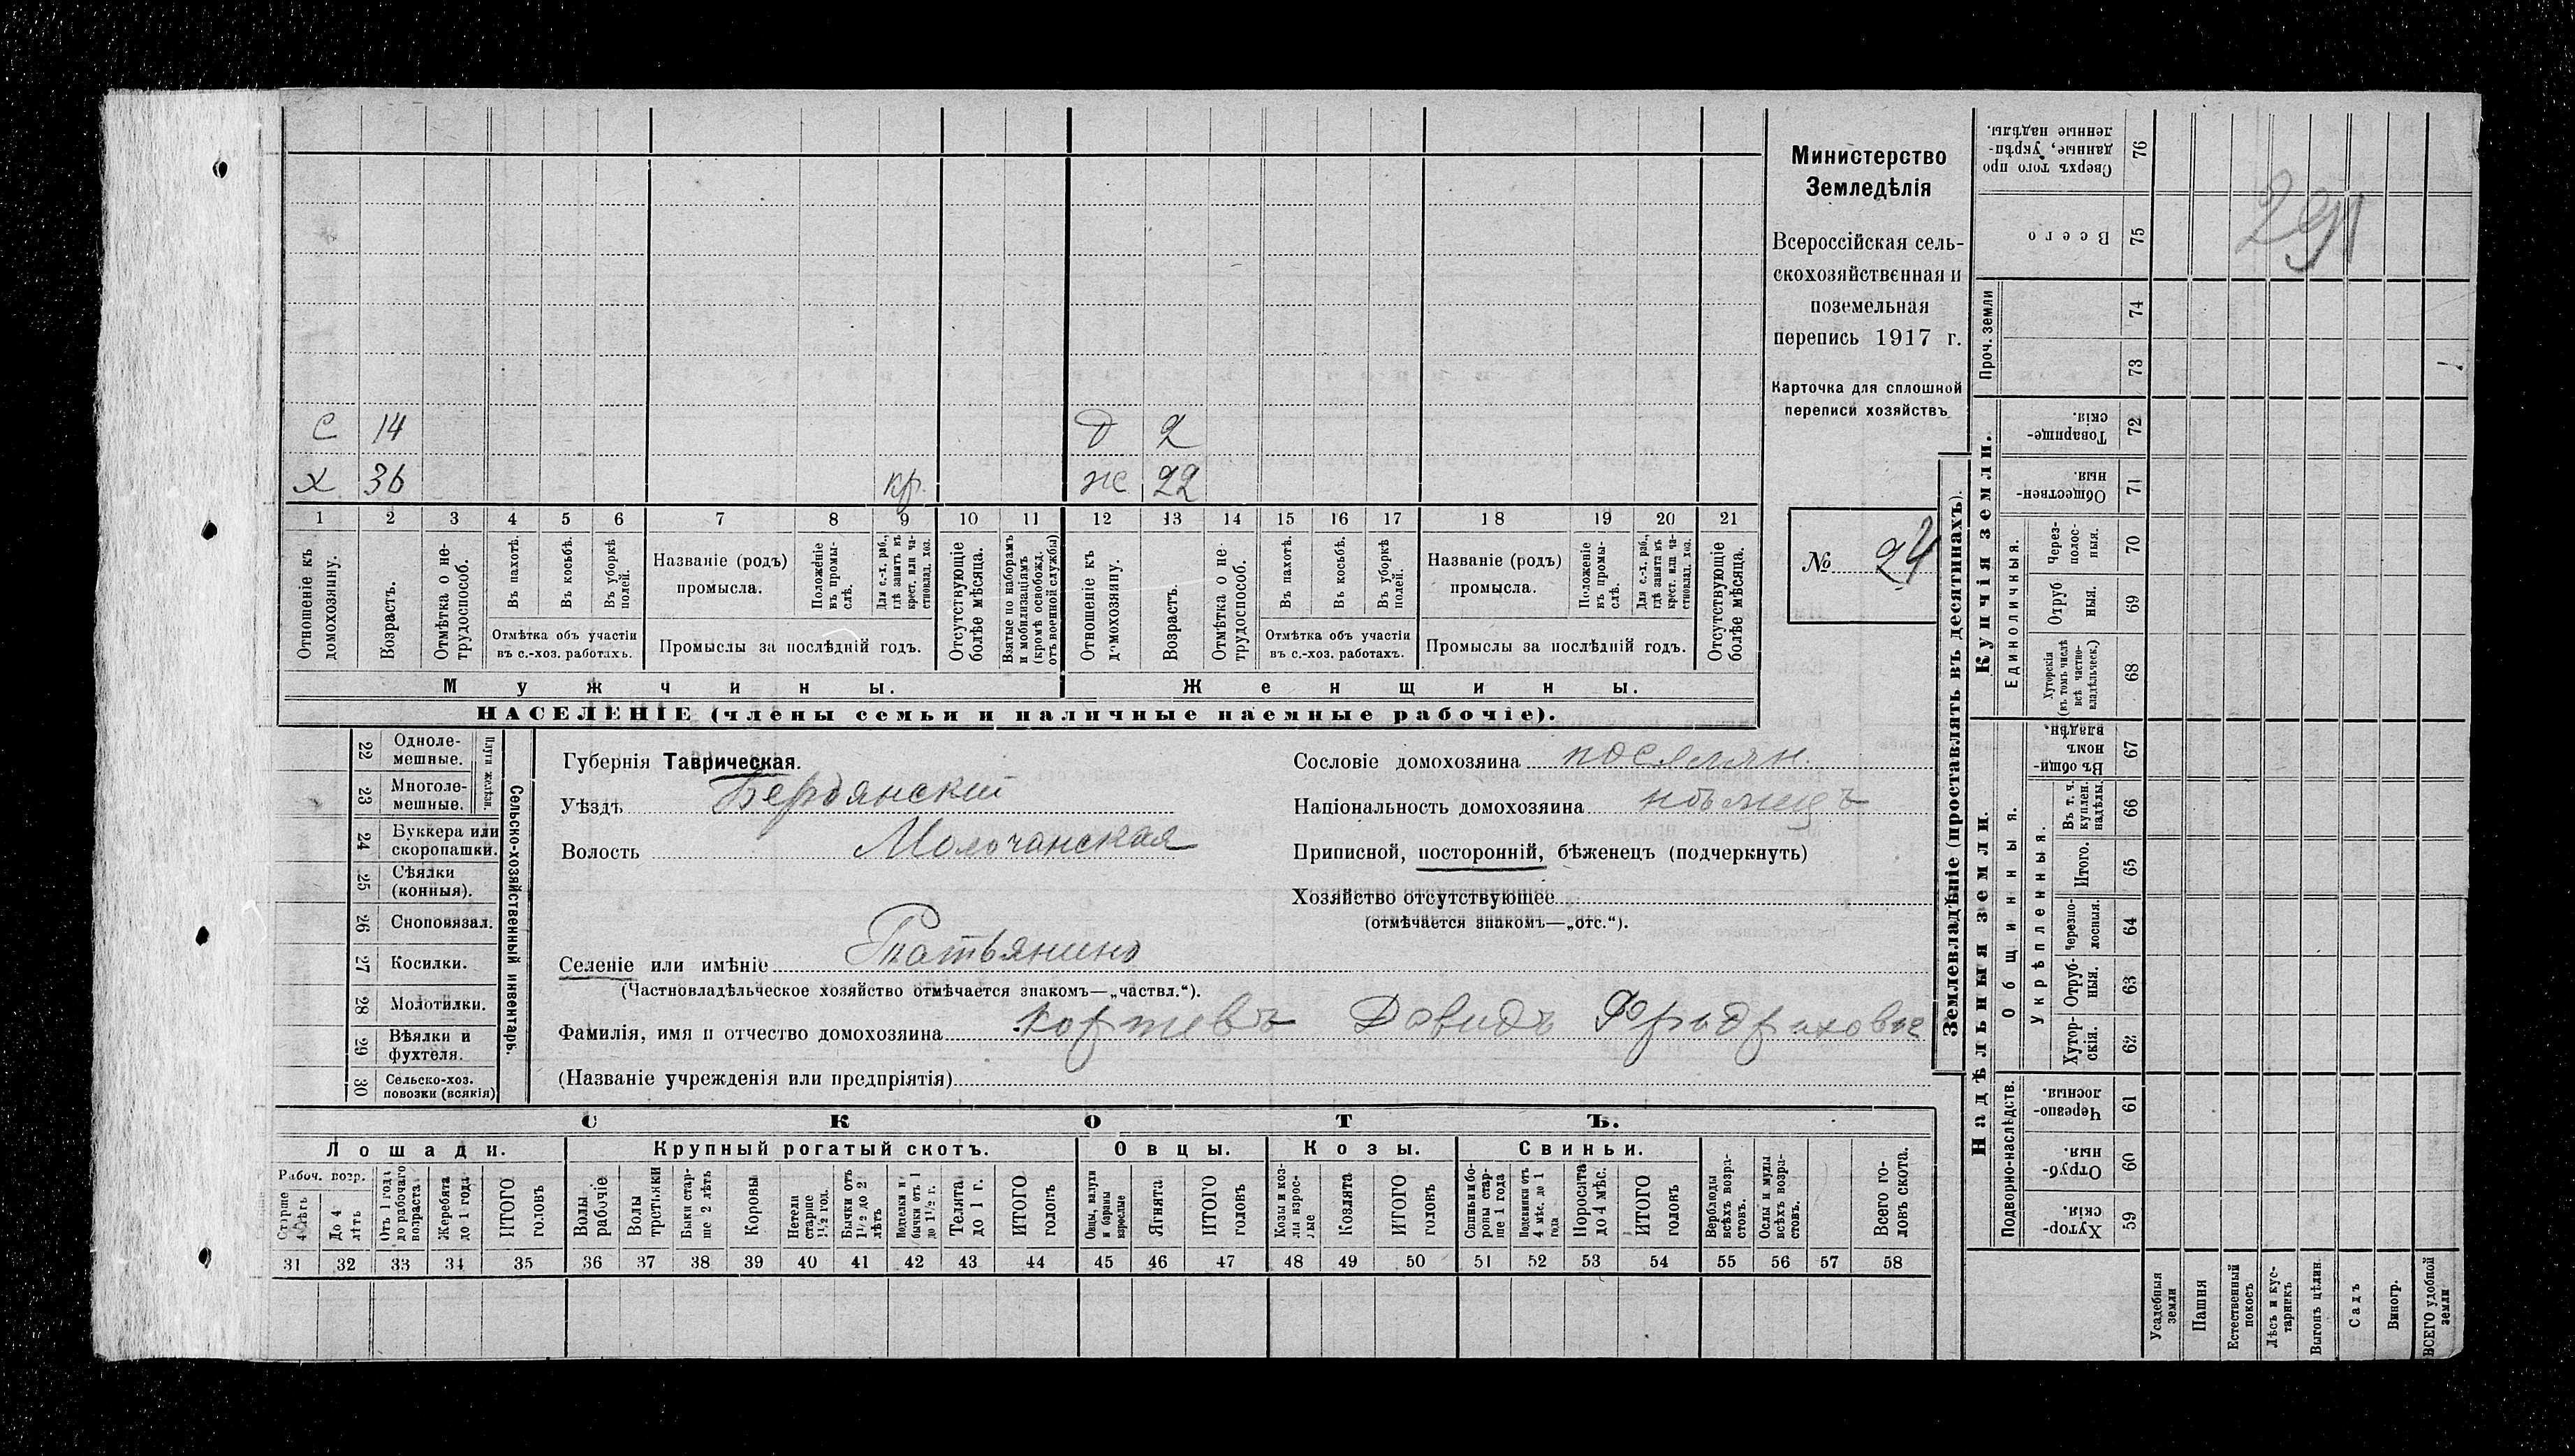 С 14 Д 2
Х 36 кр. ж 22
1 2 3 4 5 6 7 8 9 10 11 12 13 14 15 16 17 18 19 20 21
Отношеніе къ домохозяину.
Возрастъ.
Отмѣтка о не-трудоспособ.
Въ пахотѣ.
Въ косьбѣ.
Въ уборкѣ полей.
Отмѣтка объ участіи
въ с.-хоз. работахъ.
Названіе (родъ)
промысла.
Положеніе въ промы-слѣ.
Для с.-х. раб., гдѣ занятъ въ крест. или ча-стновлад. хоз.
Промыслы за послѣдній годъ.
Отсутствующіе болѣе мѣсяца.
Взятые по наборамъ и мобилизаціямъ (кромѣ освобожд. отъ военной службы)
Отношеніе къ домохозяину.
Возрастъ.
Отмѣтка о не трудоспособ.
Въ пахотѣ.
Въ косьбѣ.
Въ уборкѣ полей.
Отмѣтка объ участіи
въ с.-хоз. работахъ.
Названіе (родъ)
промысла.
Положеніе въ промы-слѣ.
Для с.-х. раб., гдѣ занята въ крест. или ча-стновлад. хоз.
Промыслы за послѣдній годъ.
Отсутствующіе болѣе мѣсяца.
Мужчины. Женщины.
НАСЕЛЕНІЕ (члены семьи и наличные наемные рабочіе).
Министерство
Земледѣлія
Всероссійская сель-
скохозяйственная и
поземельная
перепись 1917 г.
Карточка для сплошной
переписи хозяйствъ
№ 24
22 Одноле-мешные.
23 Многоле-мешные.
Плуги желѣзн.
24 Буккера или скоропашки.
25 Сѣялки (конныя).
26 Сноповязал.
27 Косилки.
28 Молотилки.
29 Вѣялки и фухтеля.
30 Сельско-хоз. повозки (всякія)
Сельско-хозяйственный инвентарь.
Губернія Таврическая.
Уѣздъ Бердянскій
Волость Молочанская
Сословіе домохозяина поселян.
Національность домохозяина нѣмецъ
Приписной, посторонній, бѣженецъ (подчеркнуть)
Хозяйство отсутствующее
(отмѣчается знакомъ—„отс.“).
Селеніе или имѣніе Татьянино
(Частновладѣльческое хозяйство отмѣчается знакомъ—„частвл.“).
Фамилія, имя и отчество домохозяина Давидъ
(Названіе учрежденія или предпріятія)
СКОТЪ.
Лошади. Крупный рогатый скотъ. Овцы. Козы. Свиньи.
Рабоч. возр.
Старше 4 лѣтъ
До 4 лѣтъ
Отъ 1 года до рабочаго возраста
Жеребята до 1 года
ИТОГО головъ
Волы рабочіе
Волы третьяки
Быки стар-ше 2 лѣтъ
Коровы
Нетели старше 1½ год.
Бычки отъ 1½ до 2 лѣтъ
Подтелки и бычки отъ 1 до 1½ г.
Телята до 1 г.
ИТОГО головъ
Овцы, валухи и бараны взрослые
Ягнята
ИТОГО головъ
Козы и коз-лы взрос-лые
Козлята
ИТОГО головъ
Свиньи и бо-ровы стар-ше 1 года
Подсвинки отъ 4 мѣс. до 1 года
Поросята до 4 мѣс.
ИТОГО головъ
Верблюды всѣхъ возра-стовъ.
Ослы и мулы всѣхъ возра-стовъ.
Всего го-ловъ скота.
31 32 33 34 35 36 37 38 39 40 41 42 43 44 45 46 47 48 49 50 51 52 53 54 55 56 57 58
Землевладѣніе (проставлять въ десятинахъ).
Надѣльныя земли. Купчія земли. Проч. земли
Подворно-наслѣдств.
Общинныя.
Укрѣпленныя.
Единоличныя.
Сверхъ того про данные, укрѣп-ленные надѣлы. 76
Всего 75
74
73
Товарище-скія. 72
Обществен-ныя 71
Через-полос-ныя. 70
Отруб ныя. 69
Хуторскія (въ томъ числѣ всѣ частно-владѣльческ.) 68
Въ общи-номъ владѣн. 67
Въ т. ч. куплен. надѣлы 66
Итого. 65
Черезпо-лосныя. 64
Отруб-ныя. 63
Хутор-скія. 62
Черезпо-лосныя. 61
Отруб-ныя. 60
Хутор-скія. 59
Усадебныя земли
Пашня
Естественный покосъ
Лѣсъ и кус-тарникъ
Выгонъ цѣлин.
Садъ
Виногр.
ВСЕГО удобной земли
291